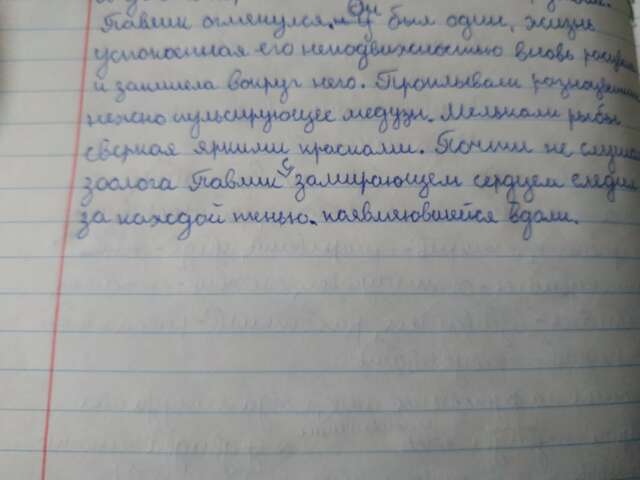 Павлик оглянулся. Он был один, жизнь
успокоенная его неподвижностью вновь
и закишела вокруг него. Проплывали
нежно пульсирующее медузы. Мелькали рыбы
сверкая яркими красками. Почти не слушая
зоолога Павлик с замирающем сердцем следил
за каждой тенью. паявляювшейся вдали.